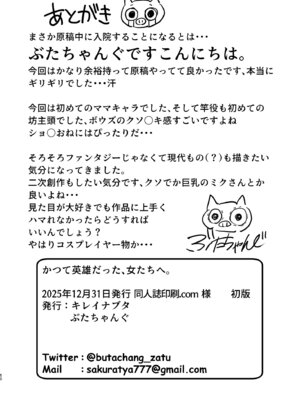 あとがき
まさか原稿中に入院することになるとは・・・
ぶたちゃんぐですこんにちは。
今回はかなり余裕持って原稿やってて良かったです、本当に
ギリギリでした・・・汗
今回は初めてのママキャラでした、そして竿役も初めての
坊主頭でした、ボウズのクソ〇キ感すごいですよね
ショ〇おねにはぴったりだ・・・
そろそろファンタジーじゃなくて現代もの(?)も描きたい
気分になってきました。
二次創作もしたい気分です、クソでか巨乳のミクさんとか
良いよね・・・
見た目が大好きでも作品に上手く
ハマれなかったらどうすれば
いいんでしょう?
やはりコスプレイヤー物か・・・
ぶたちゃんぐ
かつて英雄だった、女たちへ。
2025年12月31日発行 同人誌印刷.com 様 初版
発行:キレイナブタ
ぶたちゃんぐ
Twitter : @butachang_zatu
Mail : sakuratya777@gmail.com